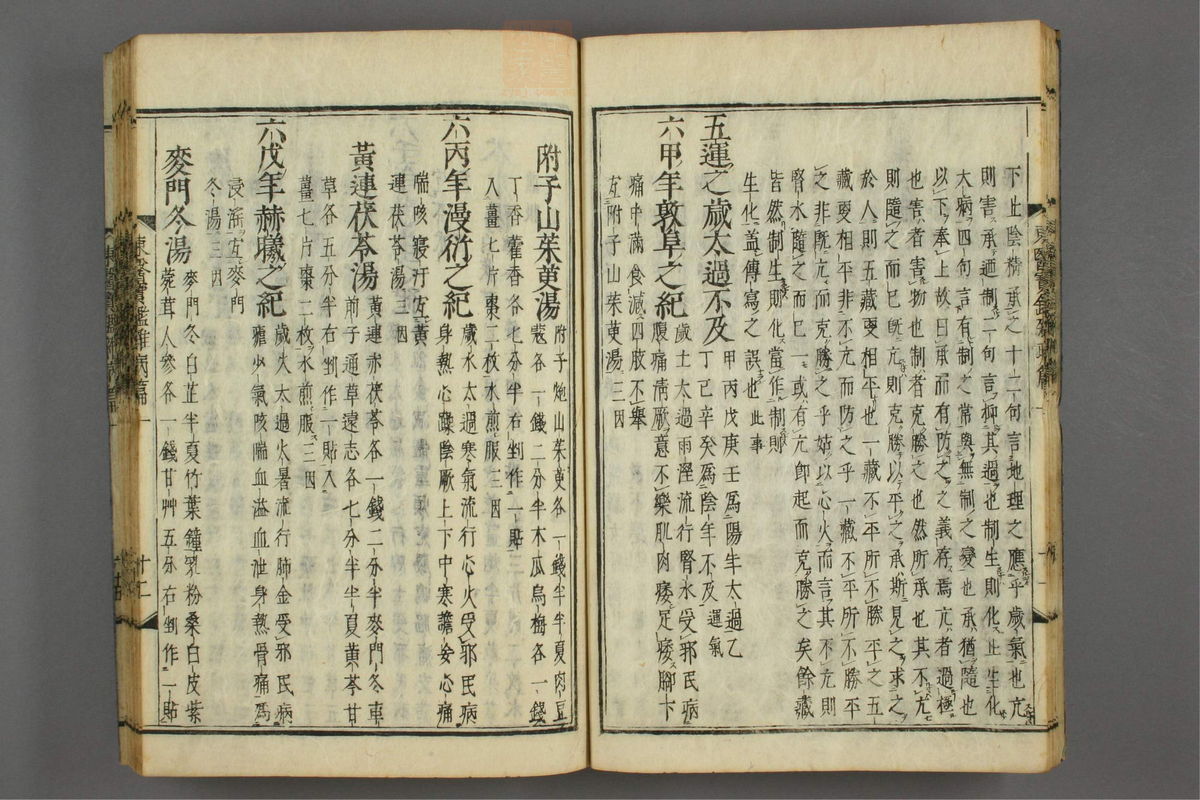 下止陰精承之十二句言地理之應乎歲氣也亢
則害承迺制一句言抑其過也制生則化止生化
大病四句言有制之常與無制之變也承猶隨也
以下奉上故曰承而有防之之義存焉亢者過極
也害者害物也制者克勝之也然所承也其不亢
則隨之而已旣亢則克勝以平之承斯見之求之
於人則五藏更相平也一藏不平所不勝平之五
藏更相平非不亢而防之乎一藏不平所不勝平
之非旣亢而克勝之乎姑以心火而言其不亢則
腎水隨之而已一或有亢卽起而克勝之矣餘藏
皆然制生則化當作制則
生化盖傳寫之誤也此事
五運之歲太過不及
甲丙戊庚壬爲陽年太過乙
丁己辛癸爲陰年不及運氣
六甲年敦阜之紀
歲土太過雨溼流行腎水受邪民病
腹痛淸厥意不樂肌肉痿足痿脚下
痛中滿食減四肢不擧
宜附子山茱萸湯三因
附子山茱萸湯
附子炮山茱萸各一錢半半夏肉豆
蔻各一錢二分半木瓜烏梅各一錢
丁香藿香各七分半右剉作一貼
入薑七片棗二枚水煎服三因
六丙年漫衍之紀
歲水太過寒氣流行心火受邪民病
身熱心躁陰厥上下中寒譫妄心痛
喘咳寢汗宜黃
連茯苓湯三因
黃連茯苓湯
黃連赤茯苓各一錢二分半麥門冬車
前子通草遠志各七分半半夏黃芩甘
草各五分半右剉作一貼入
薑七片棗二枚水煎服三因
六戊年赫曦之紀
歲火太過火暑流行肺金受邪民病
瘧少氣咳喘血溢血泄身熱骨痛爲
浸淫宜麥門
冬湯三因
麥門冬湯
麥門冬白芷半夏竹葉鍾乳粉桑白皮紫
菀茸人參各一錢甘艸五分右剉作一貼
東醫寶鑑雜病篇一
十二